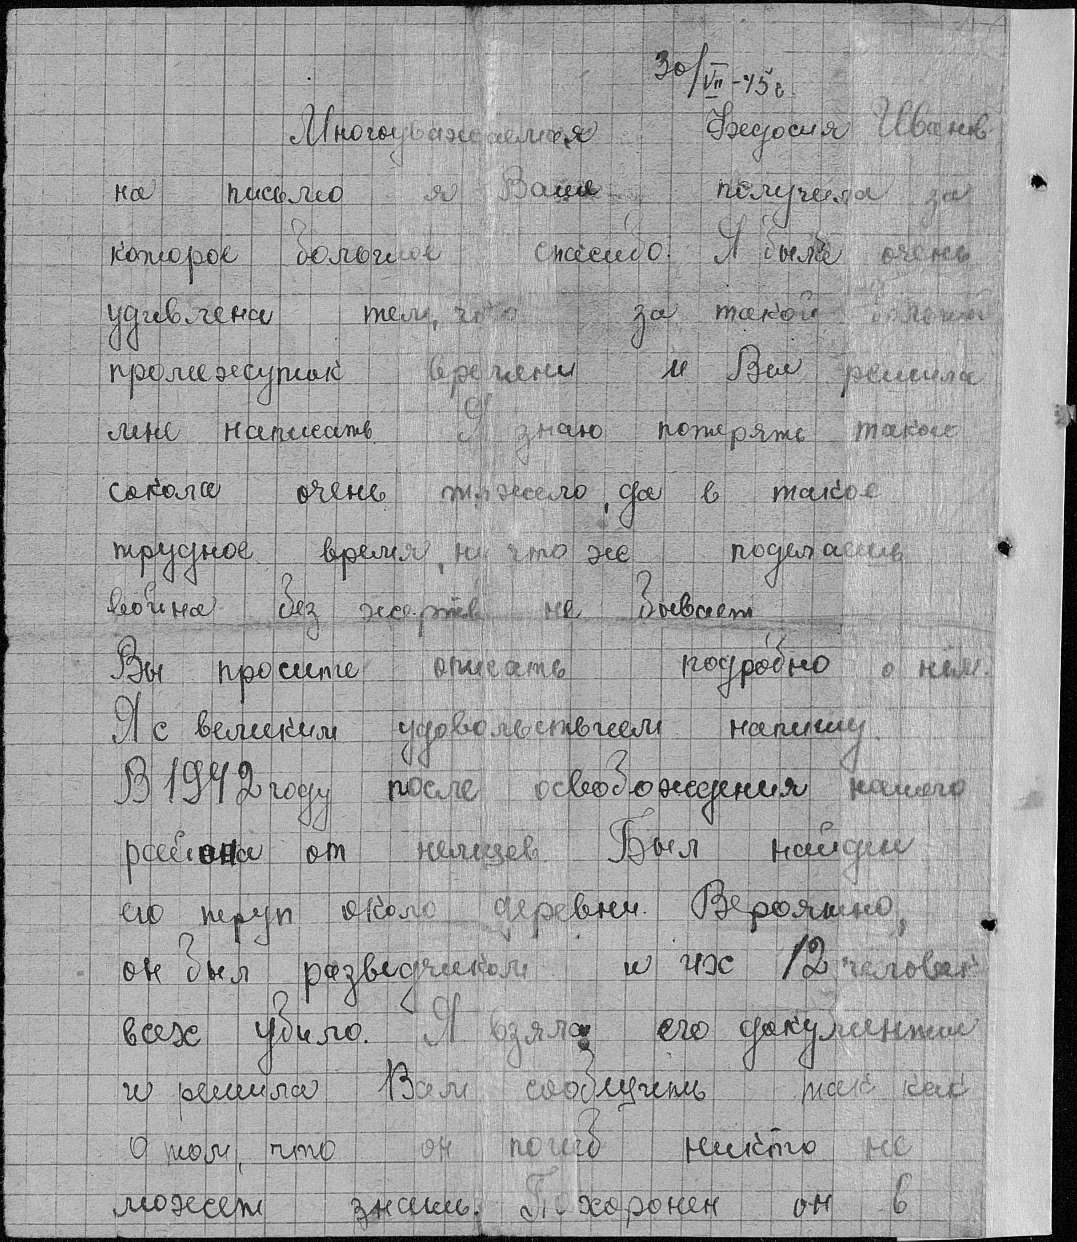 30/VII-45 г.
Многоуважаемая Федосия Иванов
на письмо я Ваше получила за
которое большое спасибо. Я была очень
удивлена тем, что за такой
промежуток времени и Вы решила
мне написать Я знаю потерять такого
сокола очень тяжело, да в такое
трудное время, ни что же поделаешь
война без жертв не бывает
Вы просите описать подробно о нём.
Я с великим удовольствием напишу.
В 1942 году после освобождения нашего
района от немцев. Был найден
его труп около деревни. Вероятно,
он был разведчиком и их 12 человек
всех убило. Я взяла его документы
и решила Вам сообщить так как
о том, что он погиб никто не
может знать. Похоронен он в